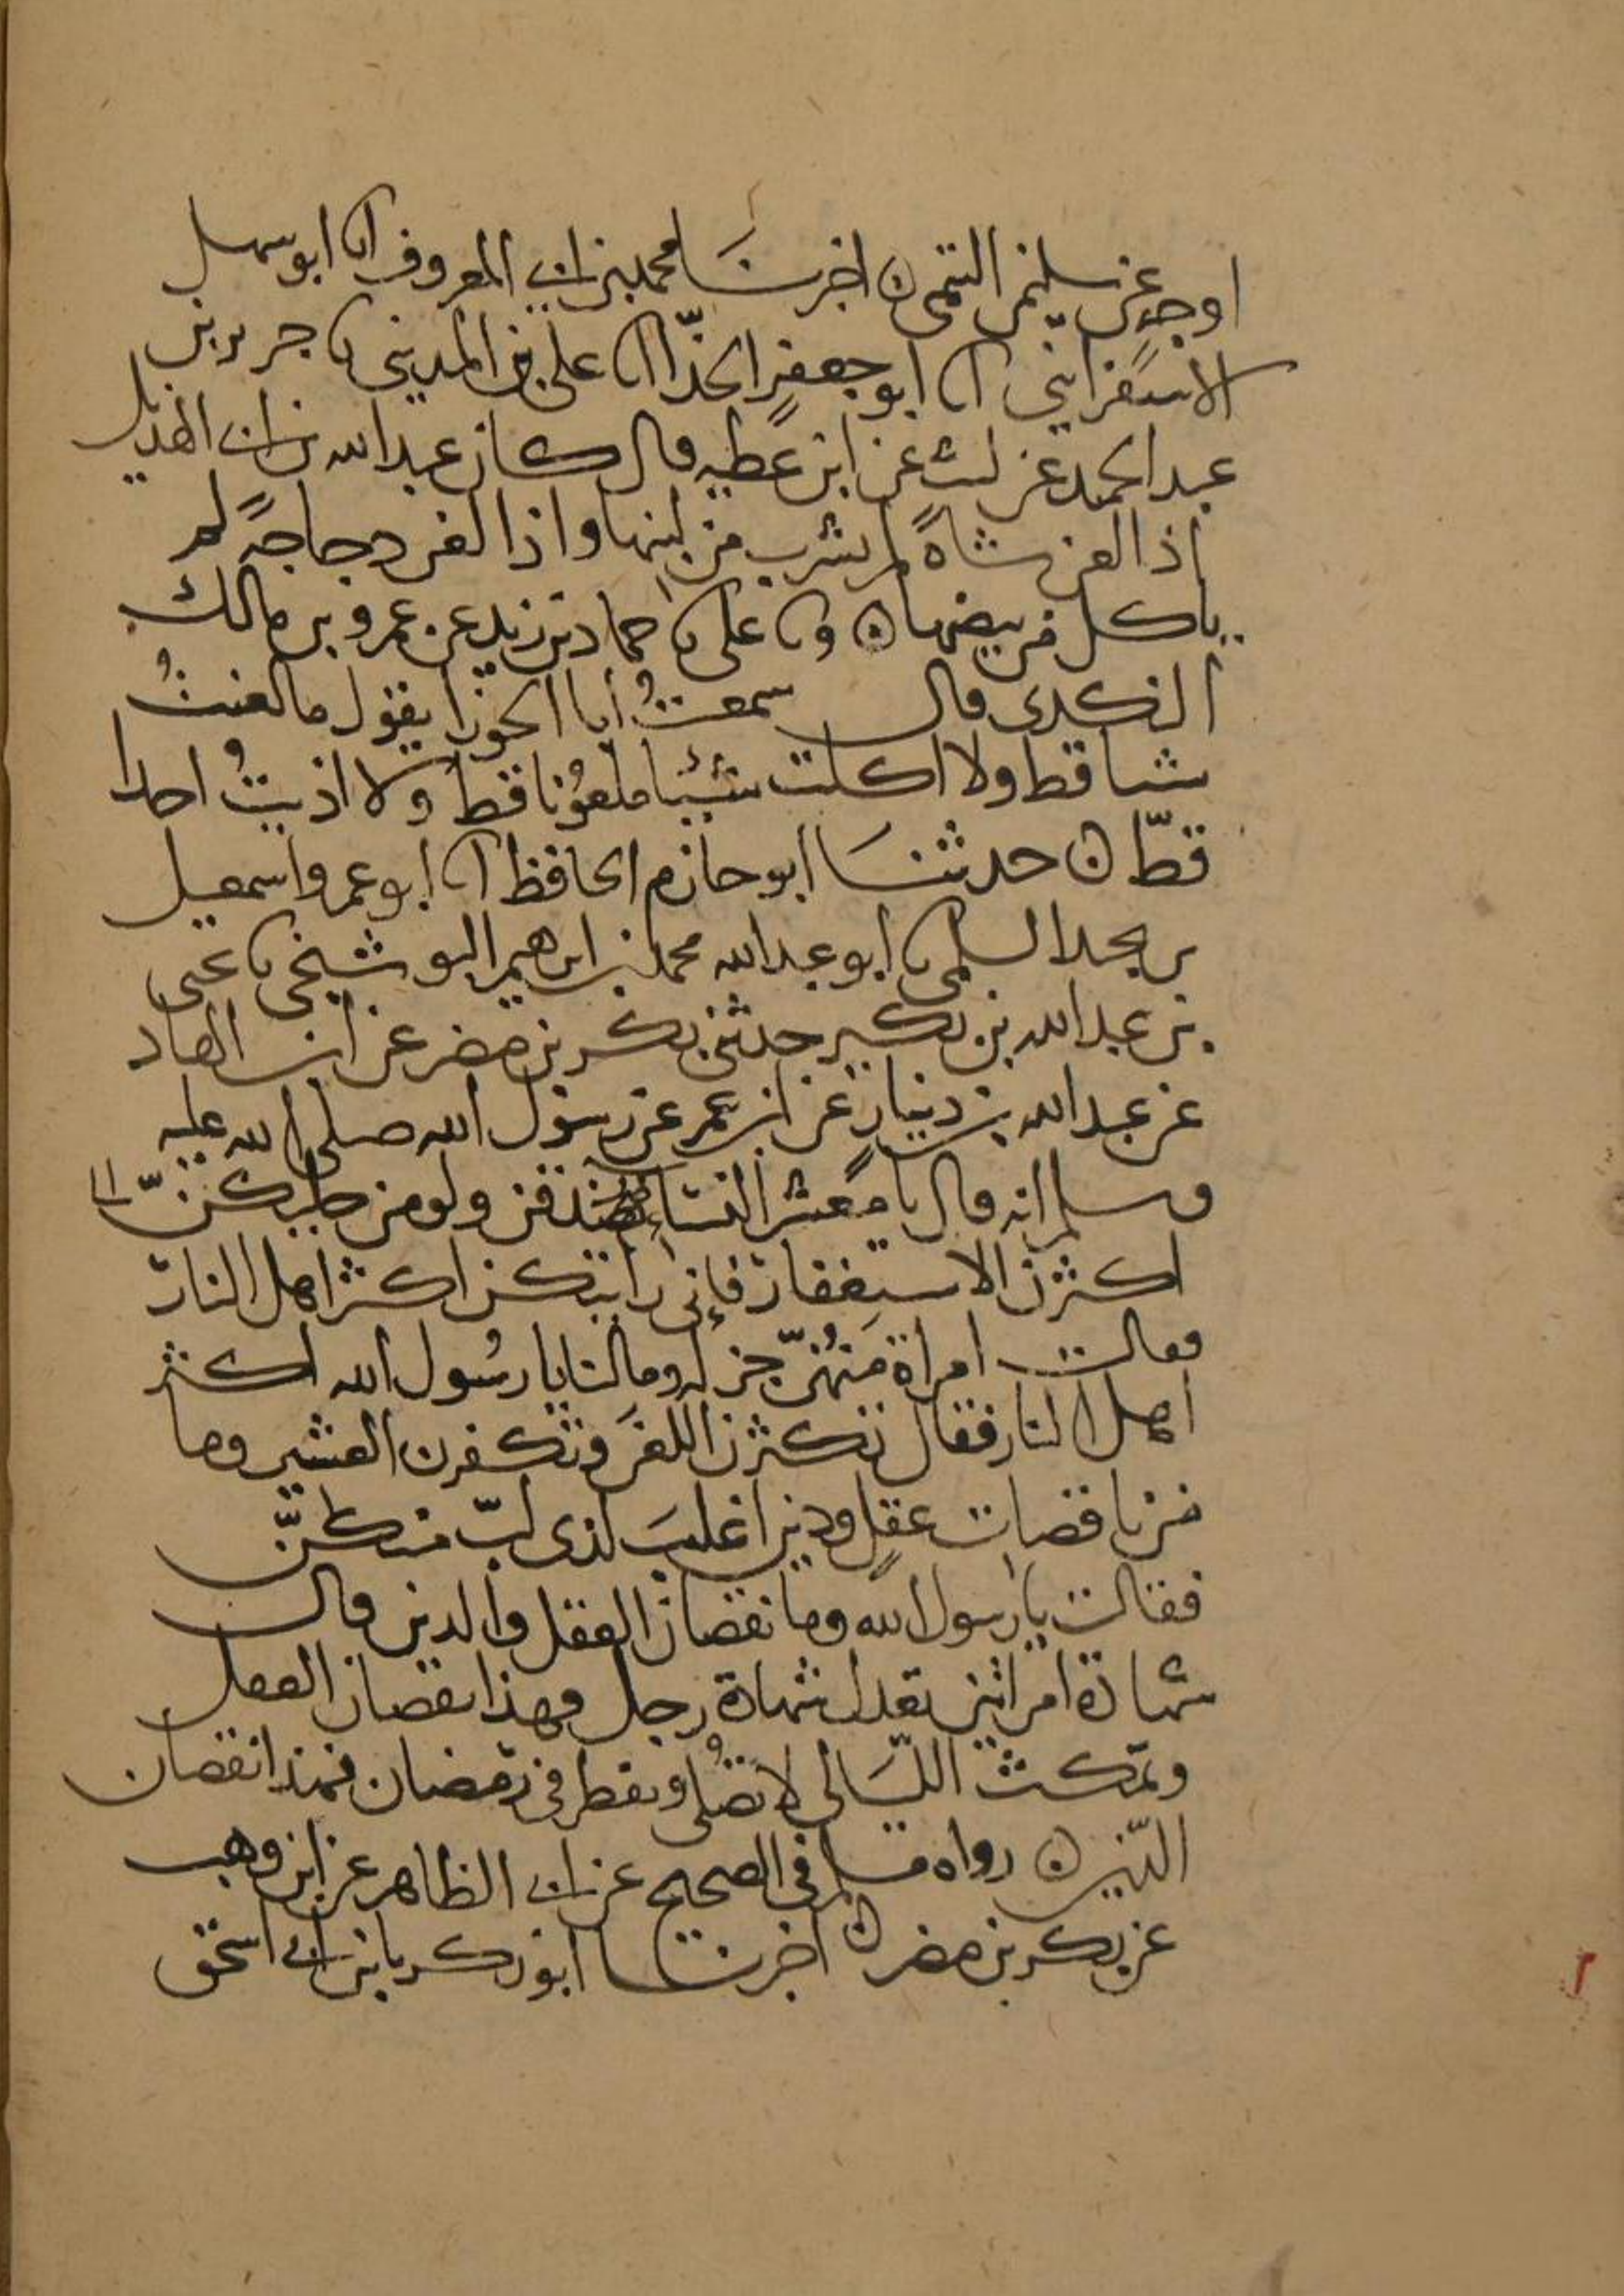 اوجه عن سليمن التيمى ن اخبرنا محمد بن ابى المعروف انا ابو سهل
الاسفراينى انا ابو جعفر الحذّا انا على بن المدينى نا جرير بن
عبد الحميد عن ليث عن ابن عطيه قال كان عبد الله بن ابى الهذيل
اذا لعن شاةً لم يشرب من لبنها واذا لعن دجاجةً لم
ياكل من بيضها ن ونا على نا حماد بن زيد عن عمرو بن مالك
النكرى قال سمعتُ ابا الجوزا يقول ما لعنتُ
شيا قط ولا اكلت شيئا ملعُونا قط ولا اذيتُ احدا
قطّ ن حدثنا ابو حازم الحافظ انا ابو عمرو اسمعيل
بن نجيد السلمى نا ابو عبد الله محمد بن ابرهيم البوشنجى نا يحيى
بن عبد الله بن بكير حدثنى بكر بن مضر عن ابن الهاد
عن عبد الله بن دينار عن ابن عمر عن رسول الله صلى الله عليه
وسلم انه قال يا معشر النساء تصدقن ولو من حليكنّ
اكثرن الاستغفار فإنى رايتكن اكثر اهل النار
فقالت امراة منهُنّ جزله وما لنا يا رسُول الله اكثر
اهل النار فقال تكثرن اللعنَ وتكفرن العشير وما
من ناقصات عقلٍ ودين اغلبَ لذى لبّ منكنّ
فقالت يا رسول الله وما نقصان العقل والدين قال
شهادة امراتين تعدل شهادة رجل فهذا نقصان العقل
وتمكث الليَالى لا تصُلى وتفطر فى رمضان فهذا نقصان
الدّين ن رواه مسلم فى الصحيح عن ابى الطاهر عن ابن وهب
عن بكر بن مضر ن اخبرنا ابو زكريا بن ابى اسحق